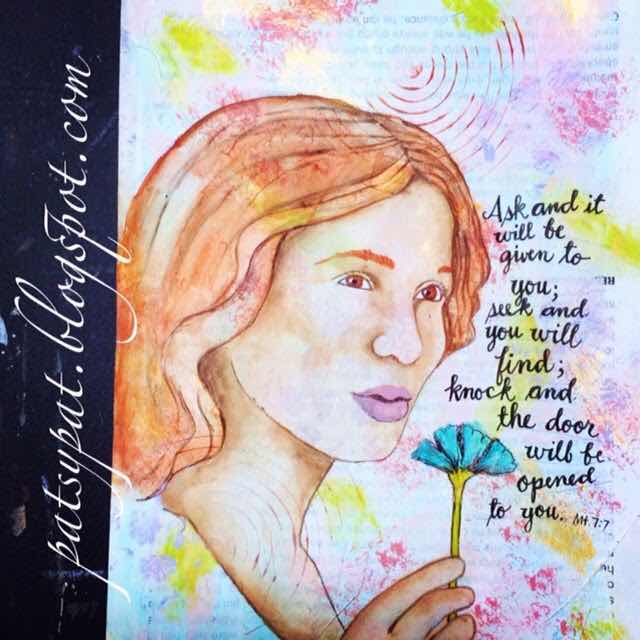 patsypat.blogspot.com
Ask and it
will be
given to
you;
seek and
you will
find;
knock and
the door
will be
opened
to you. Mt. 7:7